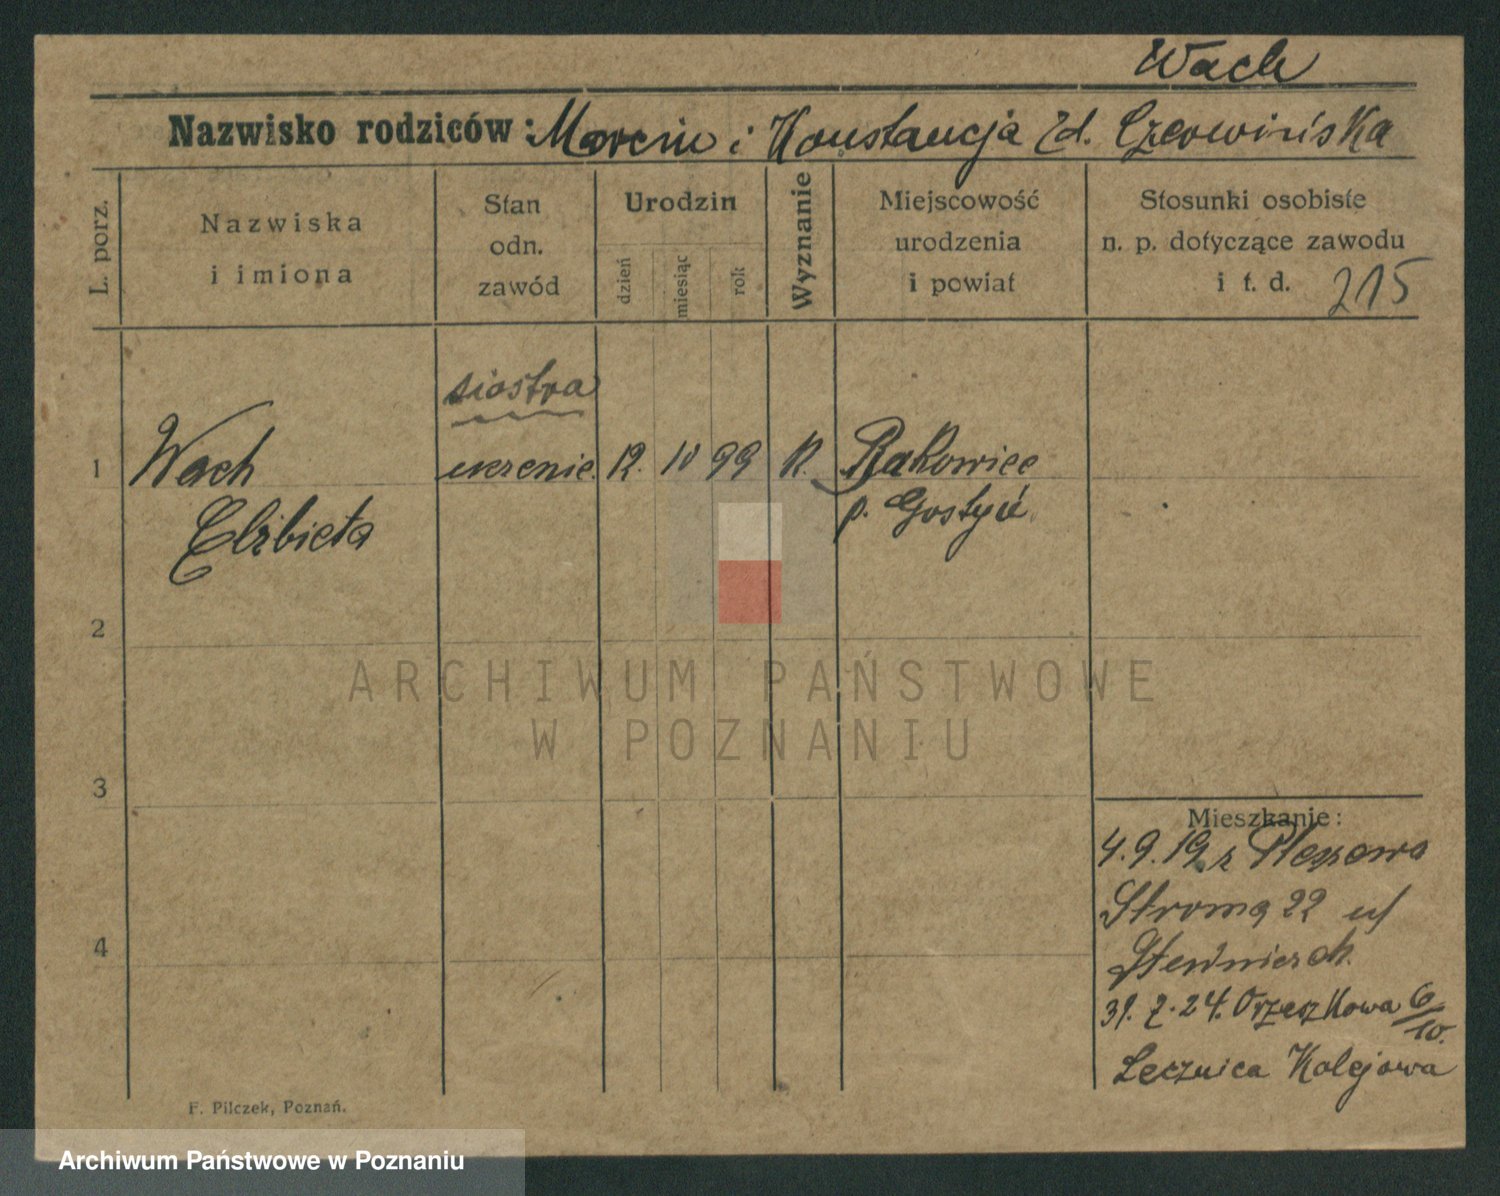 Wach
Nazwisko rodziców: Marcin i Konstancja zd. Czerwińska
L. porz.
Nazwiska
i imiona
Stan
odn.
zawód
Urodzin
dzień
miesiąc
rok
Wyznanie
Miejscowość
urodzenia
i powiat
Stosunki osobiste
n. p. dotyczące zawodu
i t. d. 215
siostra
1 Wach uczenie. 12. 10 99 K. Rakowiec
Elżbieta p. Gostyń
2
ARCHIWUM PAŃSTWOWE
W POZNANIU
3
Mieszkanie:
4.9.19 z Pleszewa
Stroma 22 u/
4
31. 7. 24. Orzeszkowa 6/10.
Lecznica Kolejowa
F. Pilczek, Poznań.
Archiwum Państwowe w Poznaniu